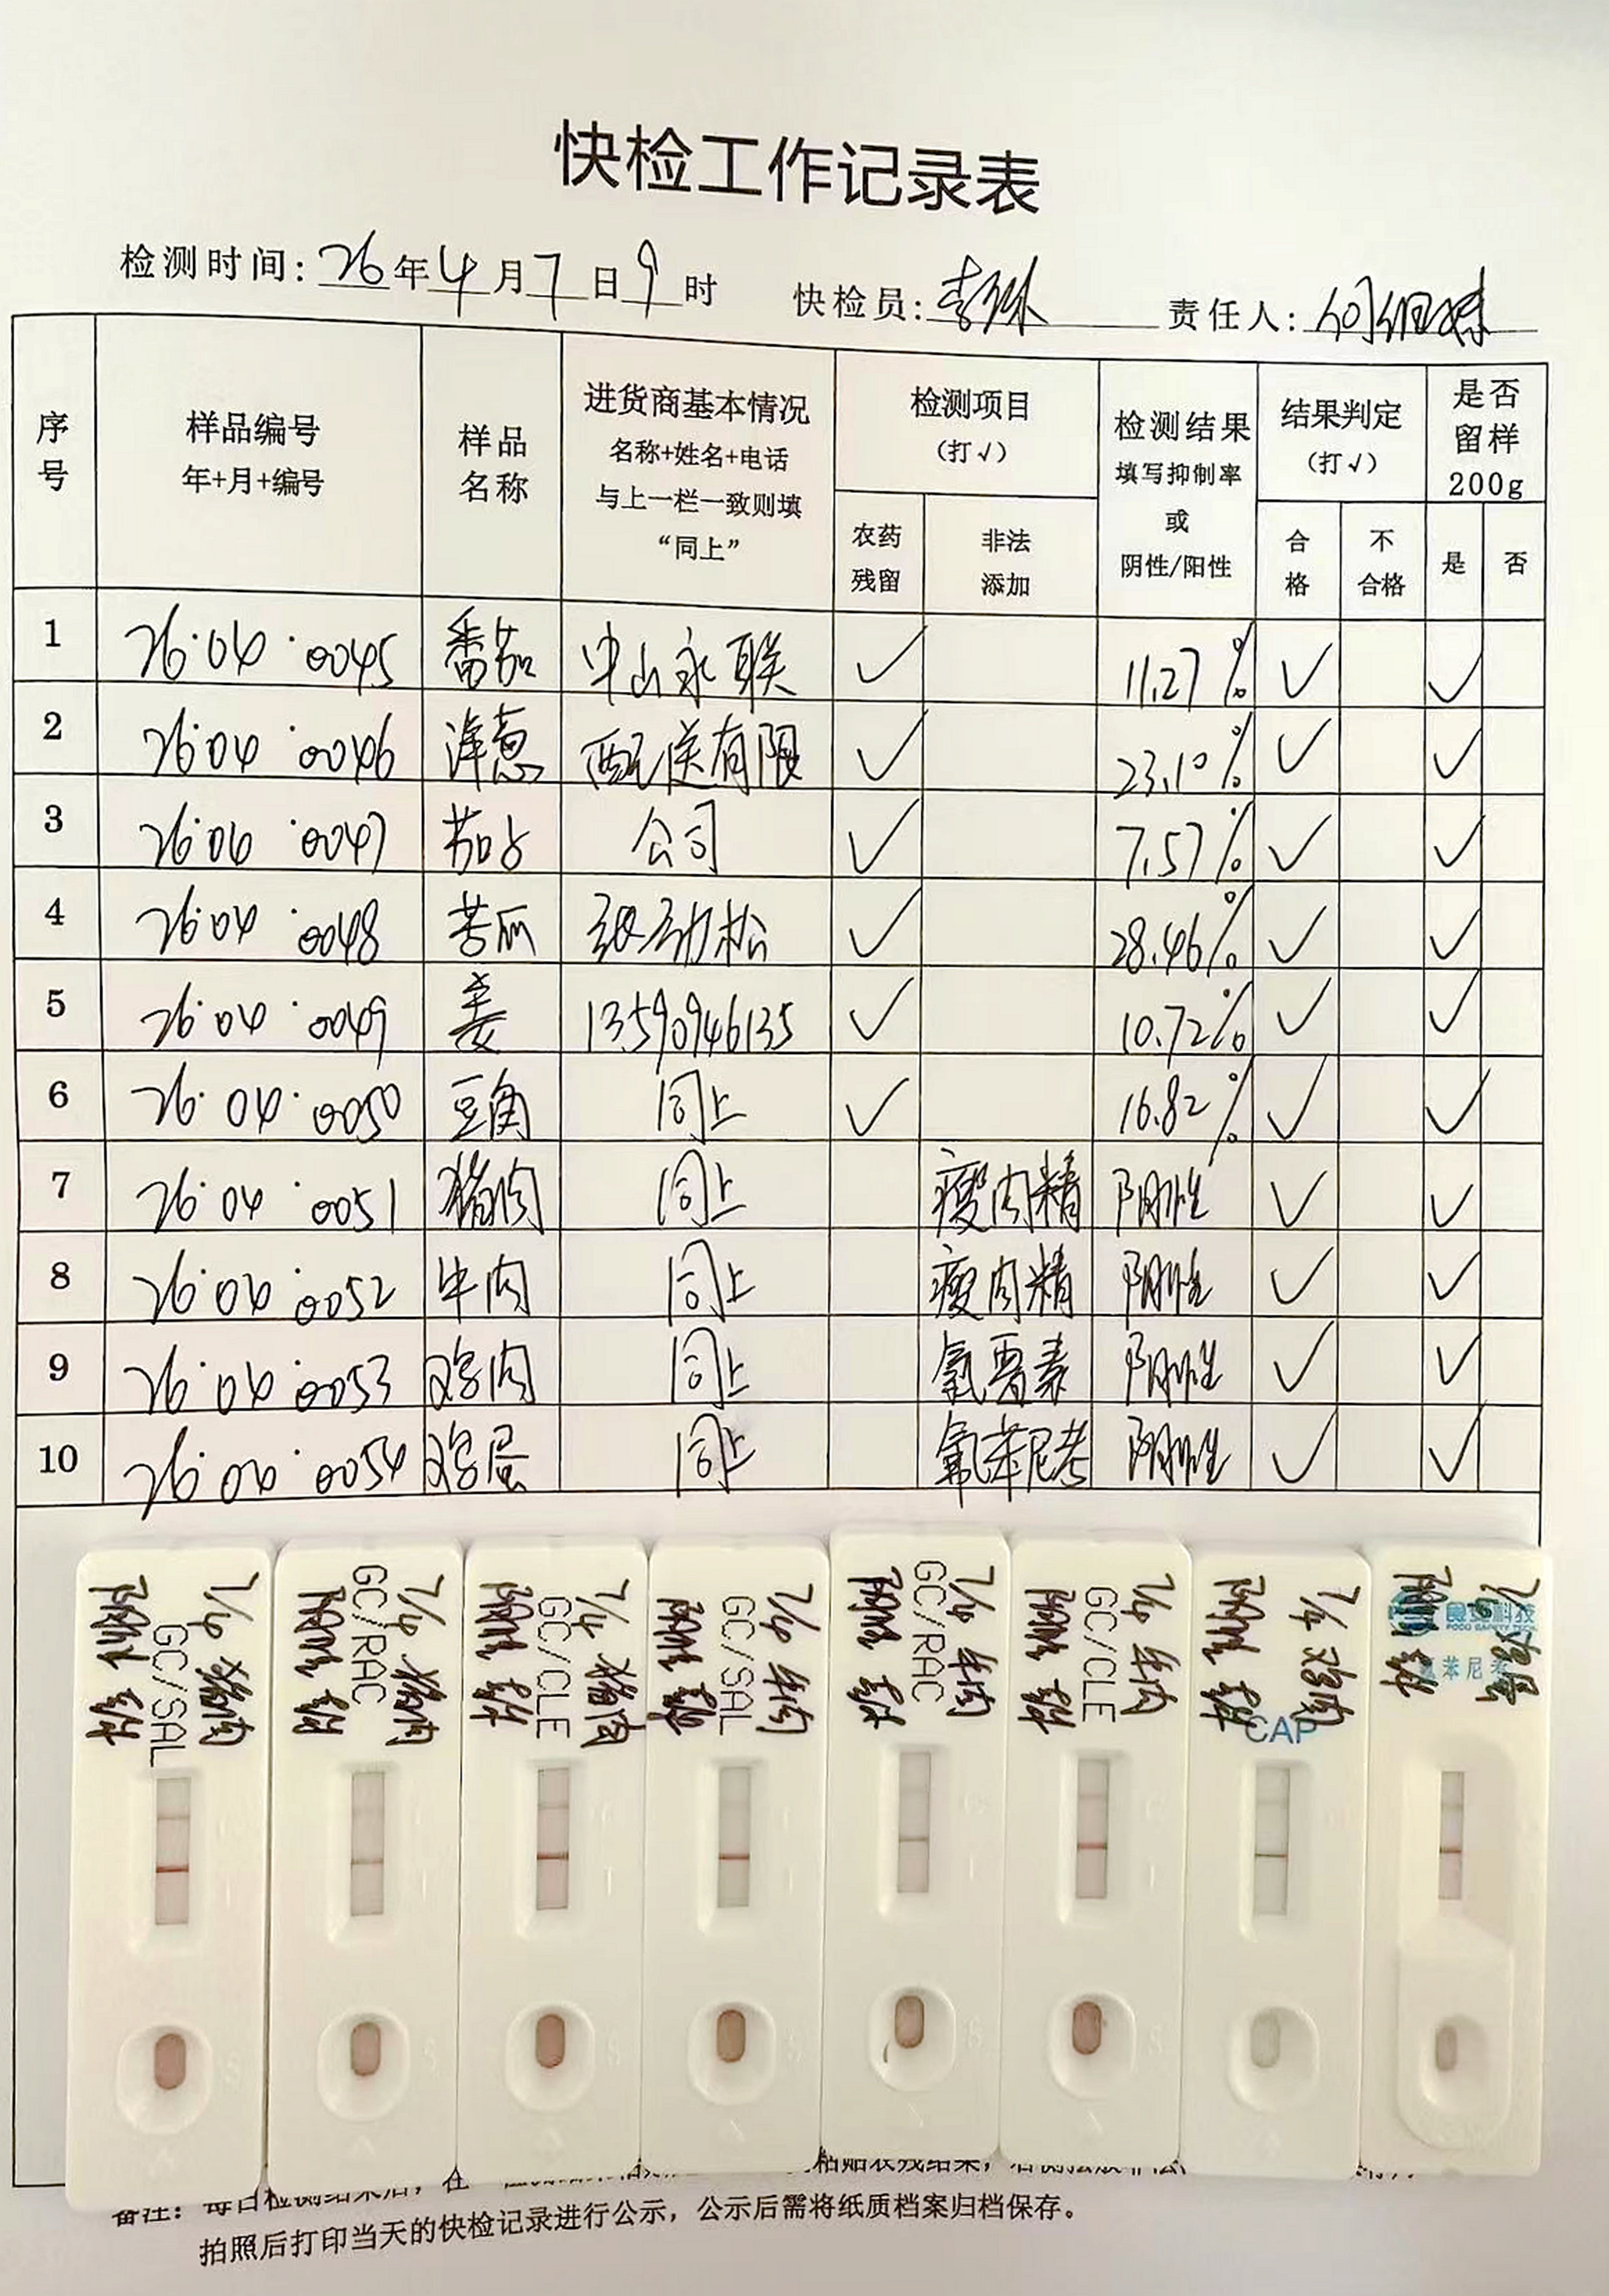 快检工作记录表
检测时间: 26年4月7日9时 快检员: 责任人:
序号 样品编号 年+月+编号 样品名称 进货商基本情况 名称+姓名+电话 与上一栏一致则填 “同上” 检测项目 (打√) 农药残留 非法添加 检测结果 填写抑制率 或 阴性/阳性 结果判定 (打√) 合格 不合格 是否留样200g 是 否
1 26·04·0045 番茄 中山永联 √ 11.27% √ √
2 26·04·0046 洋葱 配送有限 √ 23.10% √ √
3 26·04·0047 茄子 公司 √ 7.57% √ √
4 26·04·0048 苦瓜 张劲松 √ 28.46% √ √
5 26·04·0049 姜 13590946135 √ 10.72% √ √
6 26·04·0050 豆角 同上 √ 16.82% √ √
7 26·04·0051 猪肉 同上 瘦肉精 阴性 √ √
8 26·04·0052 牛肉 同上 瘦肉精 阴性 √ √
9 26·04·0053 鸡肉 同上 氯霉素 阴性 √ √
10 26·04·0054 鸡蛋 同上 氟苯尼考 阴性 √ √
7/4 猪肉 GC/SAL 阴性
7/4 猪肉 GC/RAC 阴性
7/4 猪肉 GC/CLE 阴性
7/4 牛肉 GC/SAL 阴性
7/4 牛肉 GC/RAC 阴性
7/4 牛肉 GC/CLE 阴性
7/4 鸡肉 CAP 阴性
7/4 鸡蛋 氟苯尼考 阴性
FOOD SAFETY TECH
备注: 每日检测结束后, 在
粘贴农残结果,
拍照后打印当天的快检记录进行公示, 公示后需将纸质档案归档保存。